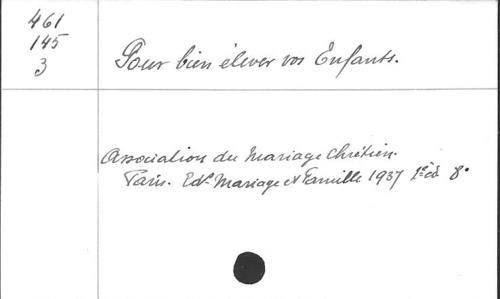 461
145
3
Pour bien élever vos Enfants.
Association du Mariage Chrétien.
Paris. Edt. Mariage et Famille 1937 1e éd 8°